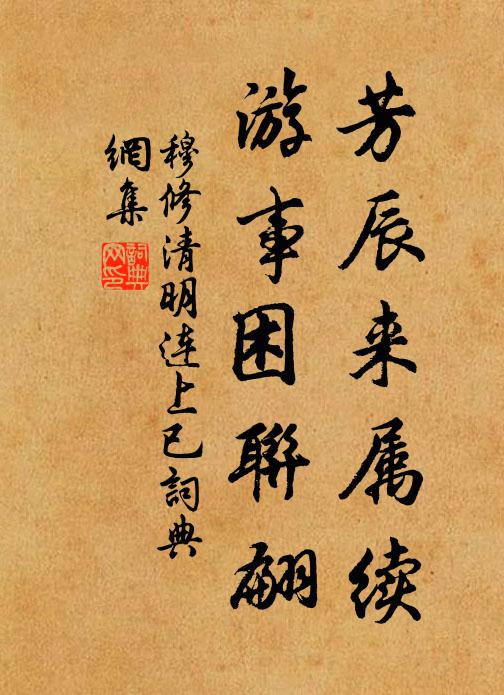 芳辰来属续
游事困聯翩
穆修清明连上巳詞典
網集
詞典网印